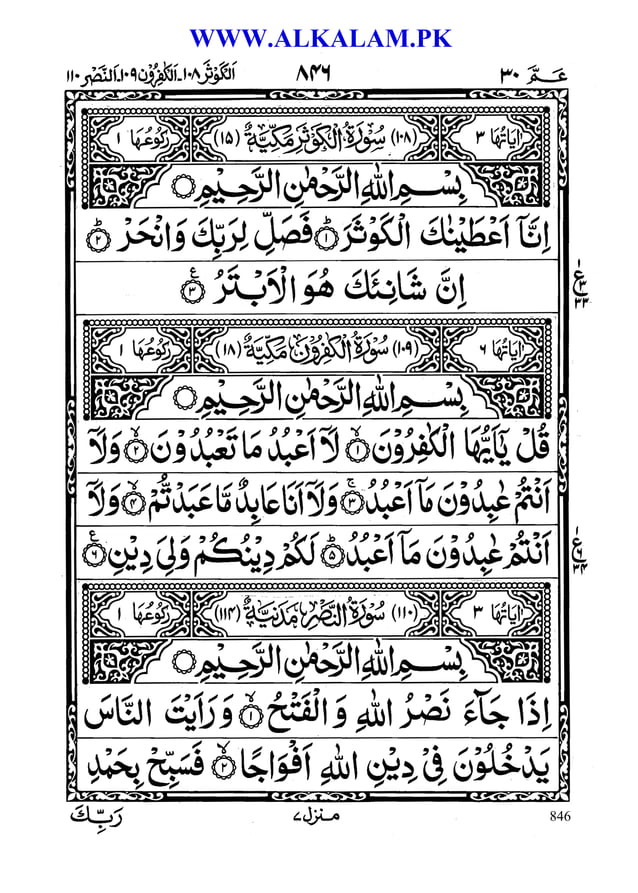 WWW.ALKALAM.PK
عـمّ ٣٠
٨٤٦
الكوثر ١٠٨-الكفرون ١٠٩-النصر ١١٠
اٰيَاتُهَا ٣ (١٠٨) سُوْرَةُ الْكَوْثَرِ مَكِّيَّةٌ (١٥) رُكُوْعُهَا ١
بِسْمِ اللّٰهِ الرَّحْمٰنِ الرَّحِيْمِ
اِنَّاۤ اَعْطَيْنٰكَ الْكَوْثَرَ ؕ﴿١﴾ فَصَلِّ لِرَبِّكَ وَانْحَرْ ؕ﴿٢﴾
اِنَّ شَانِئَكَ هُوَ الْاَبْتَرُ ﴿٣﴾
ع ١ ٣ ٣٣
اٰيَاتُهَا ٦ (١٠٩) سُوْرَةُ الْكٰفِرُوْنَ مَكِّيَّةٌ (١٨) رُكُوْعُهَا ١
بِسْمِ اللّٰهِ الرَّحْمٰنِ الرَّحِيْمِ
قُلْ يٰۤاَيُّهَا الْكٰفِرُوْنَ ۙ﴿١﴾ لَاۤ اَعْبُدُ مَا تَعْبُدُوْنَ ۙ﴿٢﴾ وَلَاۤ
اَنْتُمْ عٰبِدُوْنَ مَاۤ اَعْبُدُ ۚ﴿٣﴾ وَلَاۤ اَنَا عَابِدٌ مَّا عَبَدْتُّمْ ۙ﴿٤﴾ وَلَاۤ
اَنْتُمْ عٰبِدُوْنَ مَاۤ اَعْبُدُ ؕ﴿٥﴾ لَكُمْ دِيْنُكُمْ وَلِيَ دِيْنِ ﴿٦﴾
ع ١ ٦ ٣٤
اٰيَاتُهَا ٣ (١١٠) سُوْرَةُ النَّصْرِ مَدَنِيَّةٌ (١١٤) رُكُوْعُهَا ١
بِسْمِ اللّٰهِ الرَّحْمٰنِ الرَّحِيْمِ
اِذَا جَآءَ نَصْرُ اللّٰهِ وَالْفَتْحُ ۙ﴿١﴾ وَرَاَيْتَ النَّاسَ
يَدْخُلُوْنَ فِيْ دِيْنِ اللّٰهِ اَفْوَاجًا ۙ﴿٢﴾ فَسَبِّحْ بِحَمْدِ
رَبِّكَ
منزل ٧
846